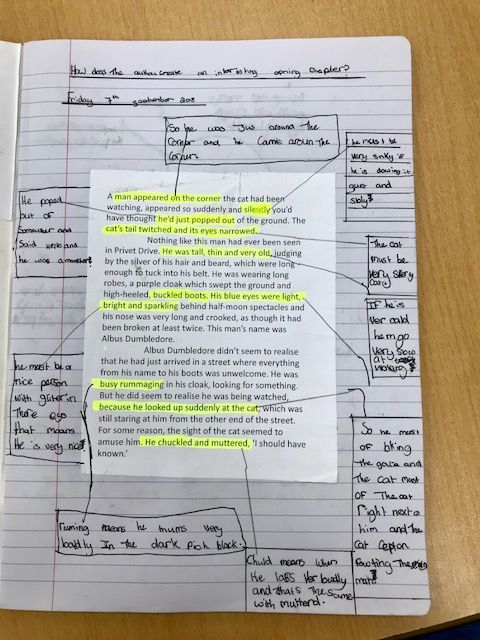 How does the author create an interesting opening chapter?
Friday 7th September 2018
So he was Jus around The
Corner and he Came aroun The
Corner.
he must be
very snky if
he is dowing it
quet and
He poped
out of
Somwhere and
Said
he was a monster
A man appeared on the corner the cat had been
watching, appeared so suddenly and silently you'd
have thought he'd just popped out of the ground. The
cat's tail twitched and its eyes narrowed.
Nothing like this man had ever been seen
in Privet Drive. He was tall, thin and very old, judging
by the silver of his hair and beard, which were long
enough to tuck into his belt. He was wearing long
robes, a purple cloak which swept the ground and
high-heeled, buckled boots. His blue eyes were light,
bright and sparkling behind half-moon spectacles and
his nose was very long and crooked, as though it had
been broken at least twice. This man's name was
Albus Dumbledore.
Albus Dumbledore didn't seem to realise
that he had just arrived in a street where everything
from his name to his boots was unwelcome. He was
busy rummaging in his cloak, looking for something.
But he did seem to realise he was being watched,
because he looked up suddenly at the cat, which was
still staring at him from the other end of the street.
For some reason, the sight of the cat seemed to
amuse him. He chuckled and muttered, 'I should have
known.'
The cat
must be
very
If he is
ver oald
he mo go
very slow
at
woking
he must be a
nice person
with gliter in
There eys
that means
He is very nice
So he must
of
The and
The cat must
of The cat
right next to
him and The
cat
means he mums very
loudly In The dark pich black.
Chuld means when
He lafs Ver loudly
and thats The same
with mutterd.